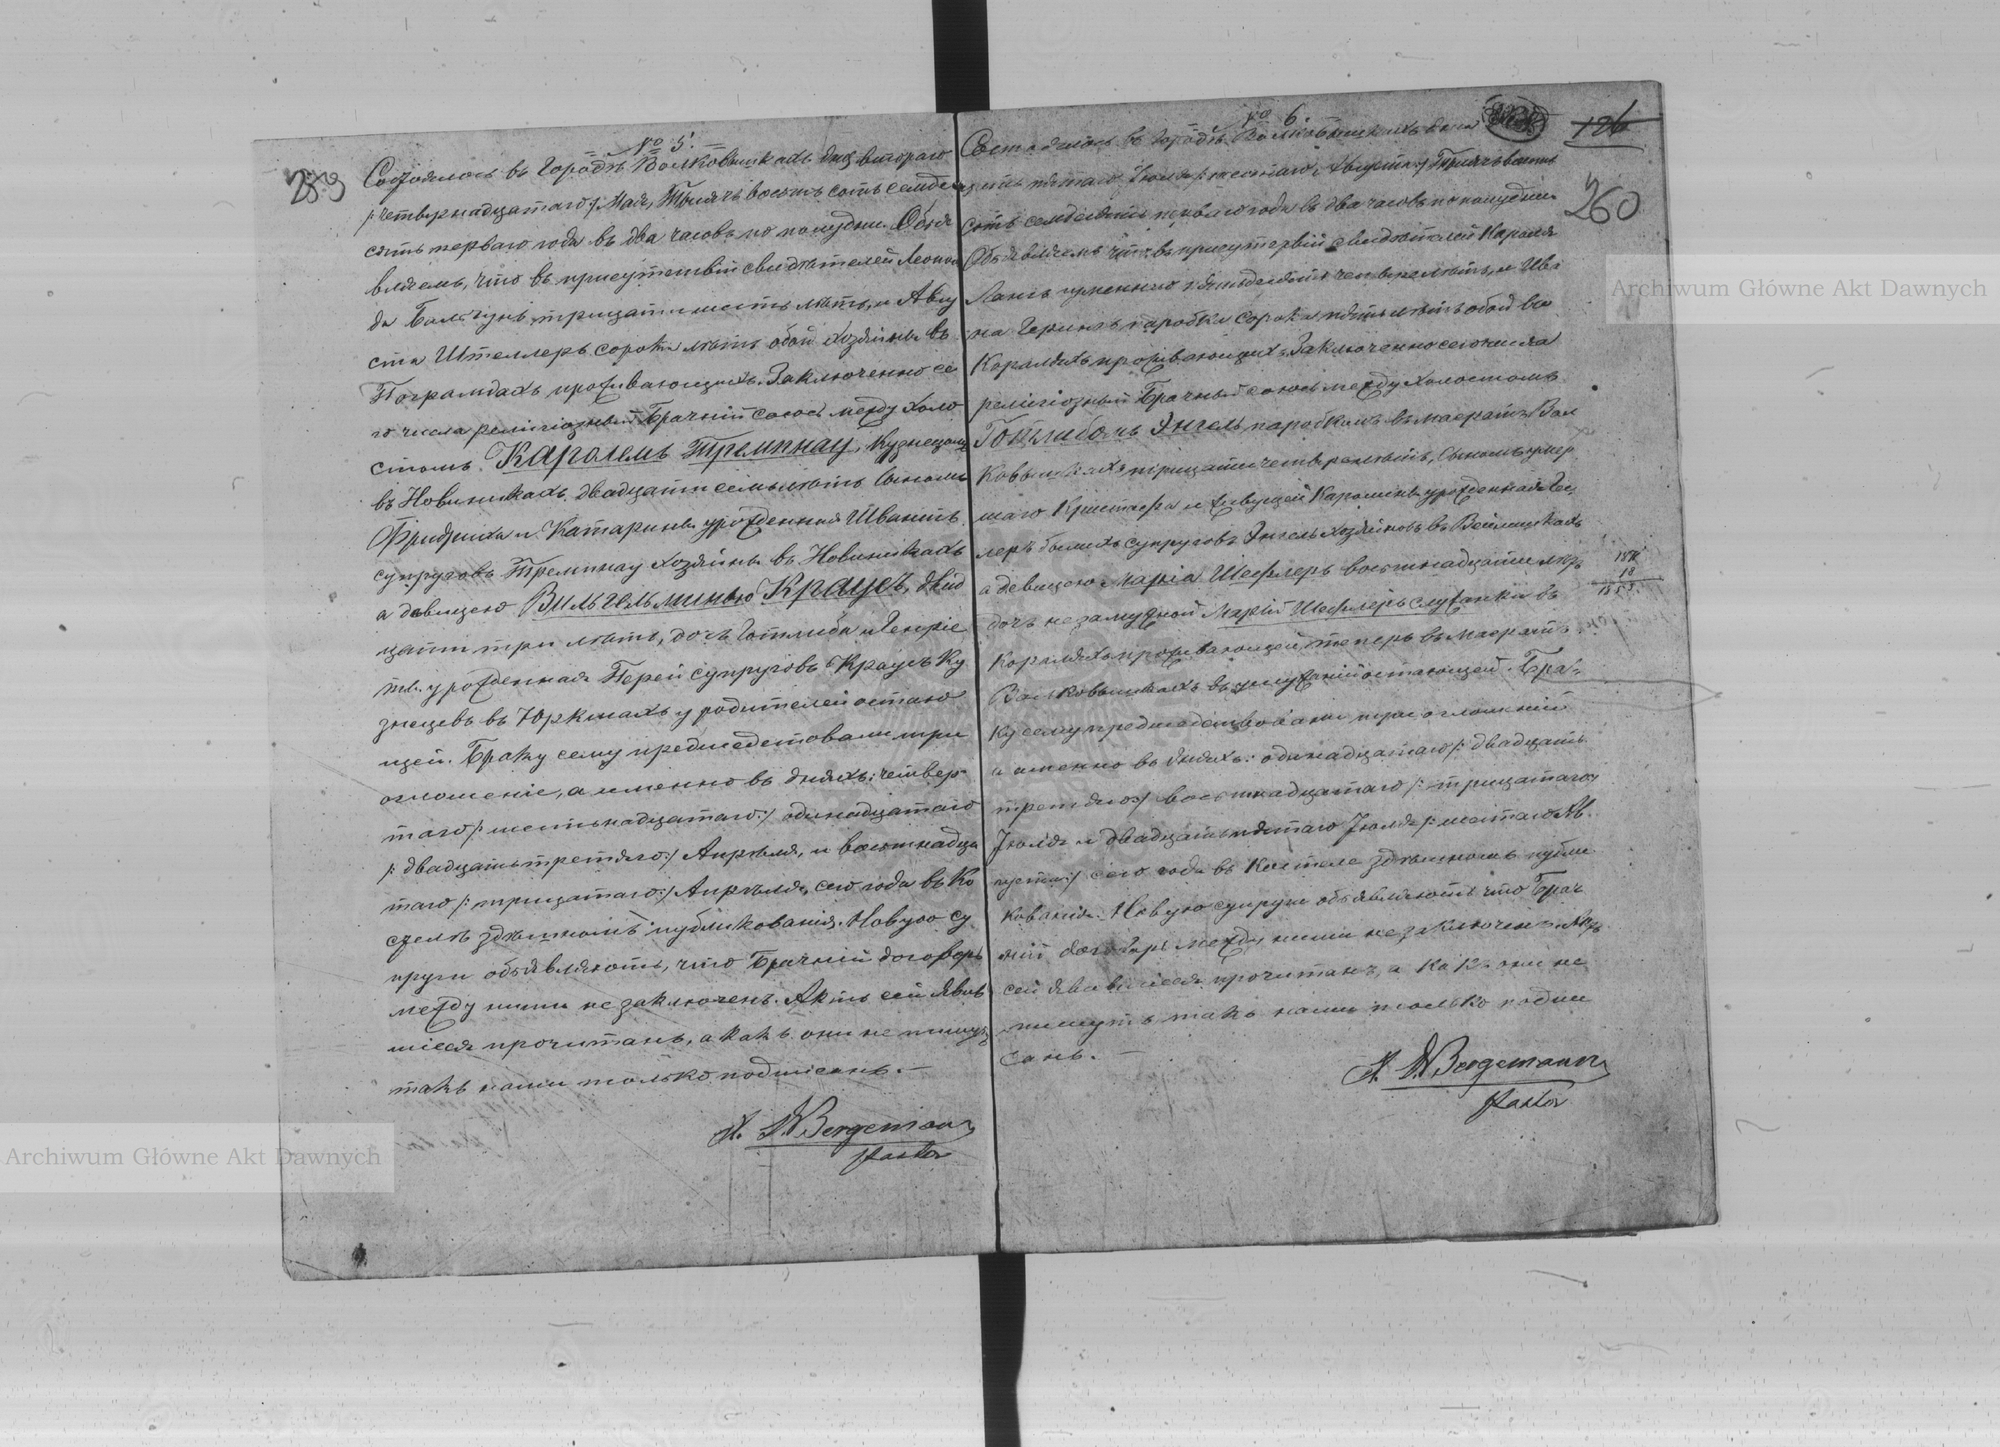 259
№ 5.
Состоялось въ городѣ Волковышкахъ дня втораго
/: четырнадцатаго :/ Мая, Тысяча восемь сотъ семьде
сятъ перваго года въ два часовъ по полудни. Объя
вляемъ, что въ присутствіи свидѣтелей Леопол
да тридцати шесть лѣтъ, и Авгу
ста Штеллеръ сорокъ лѣтъ обои хозяины въ
Пограмдахъ проживающихъ. Заключенно се
го числа религіозный Брачній союзъ между холо
стомъ Каролемъ Тремпнау, Кузнецомъ
въ Новиникахъ двадцати семь лѣтъ сыномъ
Фридриха и Катарины урожденная
супруговъ Тремпнау хозяины въ Новиникахъ
а девицею Вильгельминою Краусъ, двад
цати три лѣтъ, дочь Готлиба и Генріе
ты урожденная Герей супруговъ Краусъ Ку
знецевъ въ Юркшахъ у родителей остаю
щей. Браку сему предшедствовали три
оглошеніе, а именно въ дняхъ: четвер
таго /: шестьнадцатаго :/ одинадцатаго
/: двадцать третяго :/ Апрѣля, и восмнадца
таго /: трицатаго :/ Апрѣля, сего года въ Ко
стелѣ здѣшномъ публикованія. Новую су
пруги объявляютъ, что Брачній договоръ
между ними не заключенъ. Актъ сей явив
шіеся прочитанъ, а какъ они не пишутъ
такъ нами только подписанъ. —
A. W Bergemann
Pastor
126
260
№ 6.
Состоялось въ городѣ Волковышкахъ дня
цать пятаго Іюля /: шестаго Августа :/ Тысяча восемь
сотъ семдесять перваго года въ два часовъ по полудни
Объявляемъ что въ присутствій свидѣтелей Кароля
Лангъ пятьдесять четыре лѣтъ, и Ива
на Герингъ паробки сорокъ пять лѣтъ обои въ
Кораляхъ проживающихъ. Заключенно сего числа
религіозный Брачный союзъ между холостомъ
Готлибомъ Энгель паробкомъ въ маератѣ Вол
ковышкахъ трицати четыре лѣтъ, сыномъ умер
шаго Кристофа и живущей Каролины урожденная
супруговъ Энгель хозяиновъ въ
а девицею Марія Шефлеръ восьмнадцати лѣтъ
дочъ незамужной Марій Шефлеръ служанки въ
Кораляхъ проживающей теперъ въ маератѣ
Волковышкахъ въ остающей. Бра=
ку сему предшедствовали три оглошеній
а именно въ дняхъ: одинадцатаго /: двадцать
третяго :/ восьмнадцатаго /: трицатаго :/
Іюля и двадцать пятаго Іюля /: шестаго Ав
густа :/ сего года въ Костеле здѣшномъ публи
кованія. Новую супруги объявляютъ что Брач
ній договоръ между ними не заключенъ. Актъ
сей явившіеся прочитанъ, а какъ они не
пишутъ такъ нами только подпи
санъ. —
1871
18
1853.
A. W Bergemann
Pastor
Archiwum Główne Akt Dawnych
Archiwum Główne Akt Dawnych